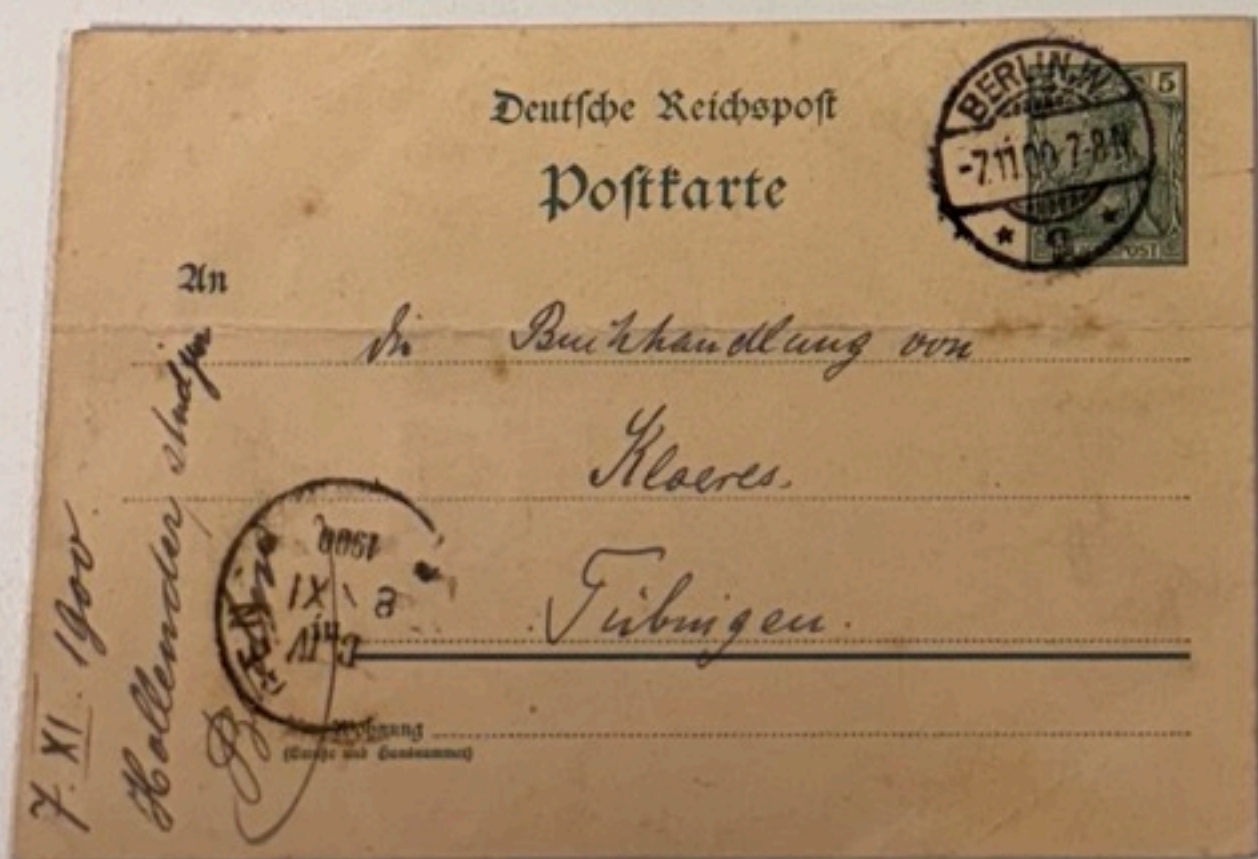 Deutsche Reichspost
Postkarte
BERLIN.W.
-7.11.00.7-8N.
5
An
die Buchhandlung von
Kloeres.
Tübingen.
Wohnung
(Straße und Hausnummer)
7. XI. 1900.
Hollender
8 XI
1900